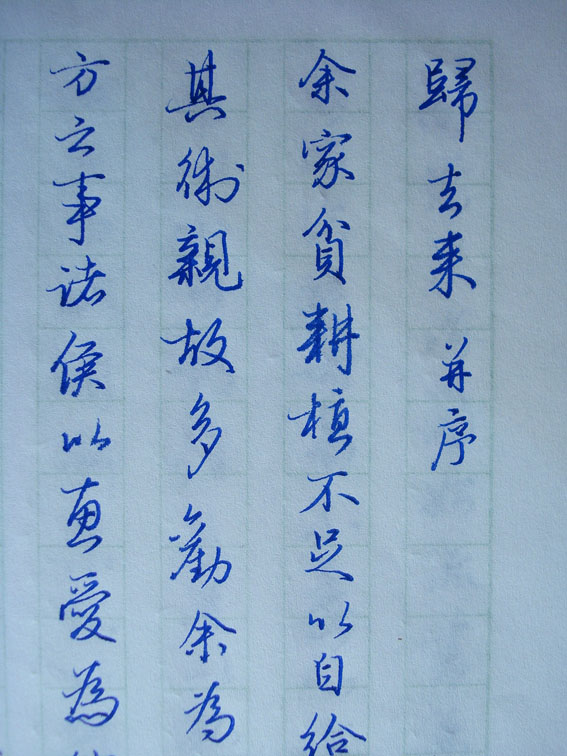 歸去来 并序
余家貧耕植不足以自給
其術親故多勸余為
方之事諸侯以惠愛為